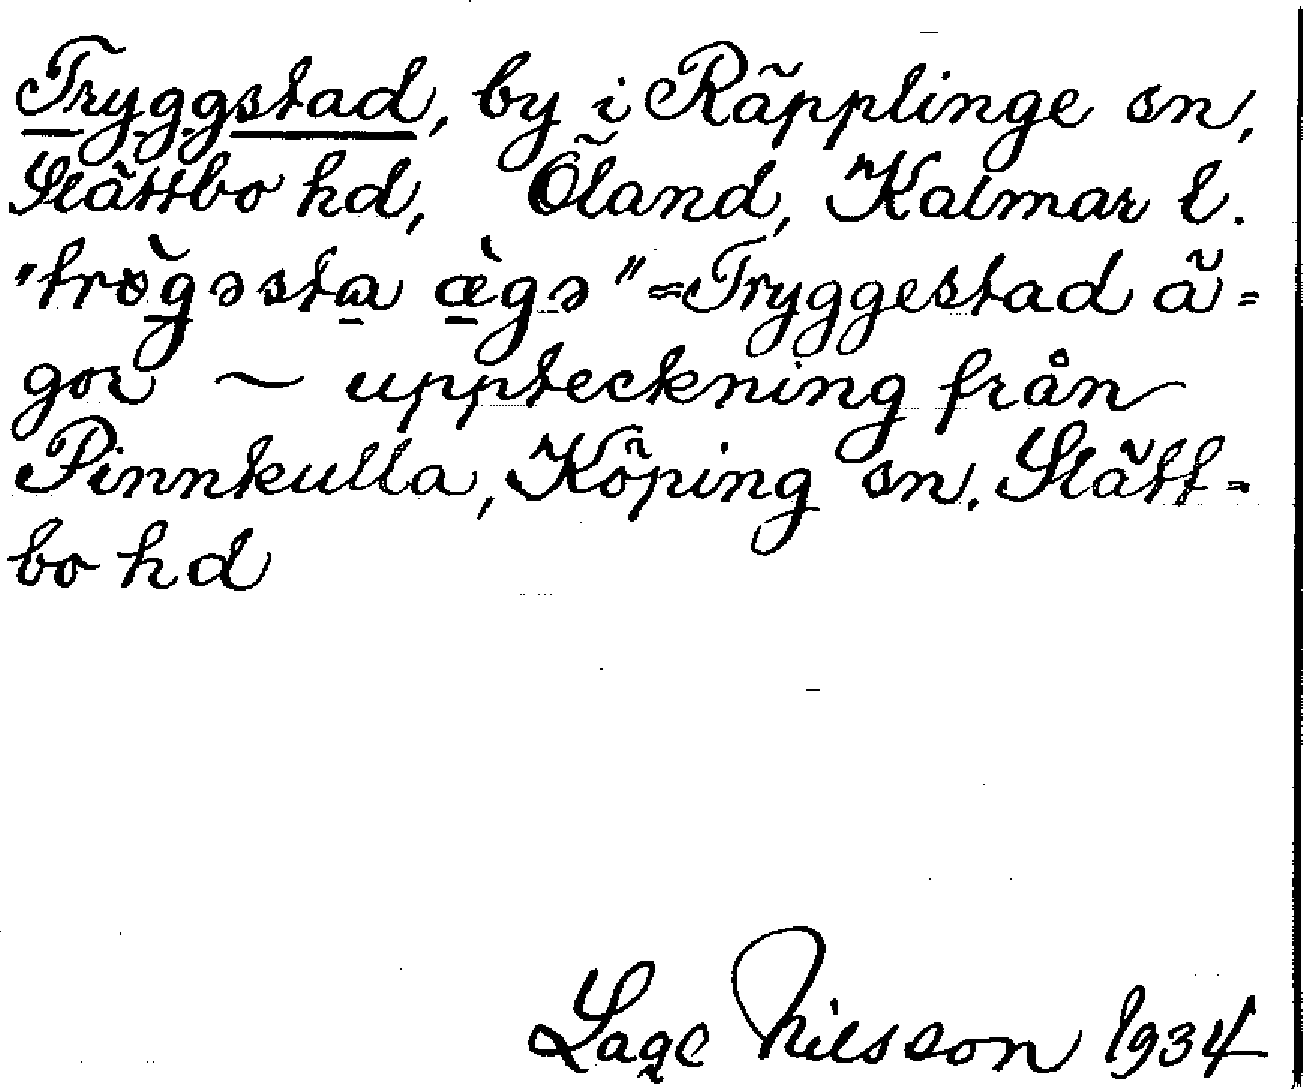 Tryggstad, by i Räpplinge sn,
Slättbo hd, Öland, Kalmar l.
"trög̀əsta æ̀gə" = Tryggestad ä=
gor ~ uppteckning från
Pinnkulla, Köping sn. Slätt=
bo hd
Lage Nilsson 1934